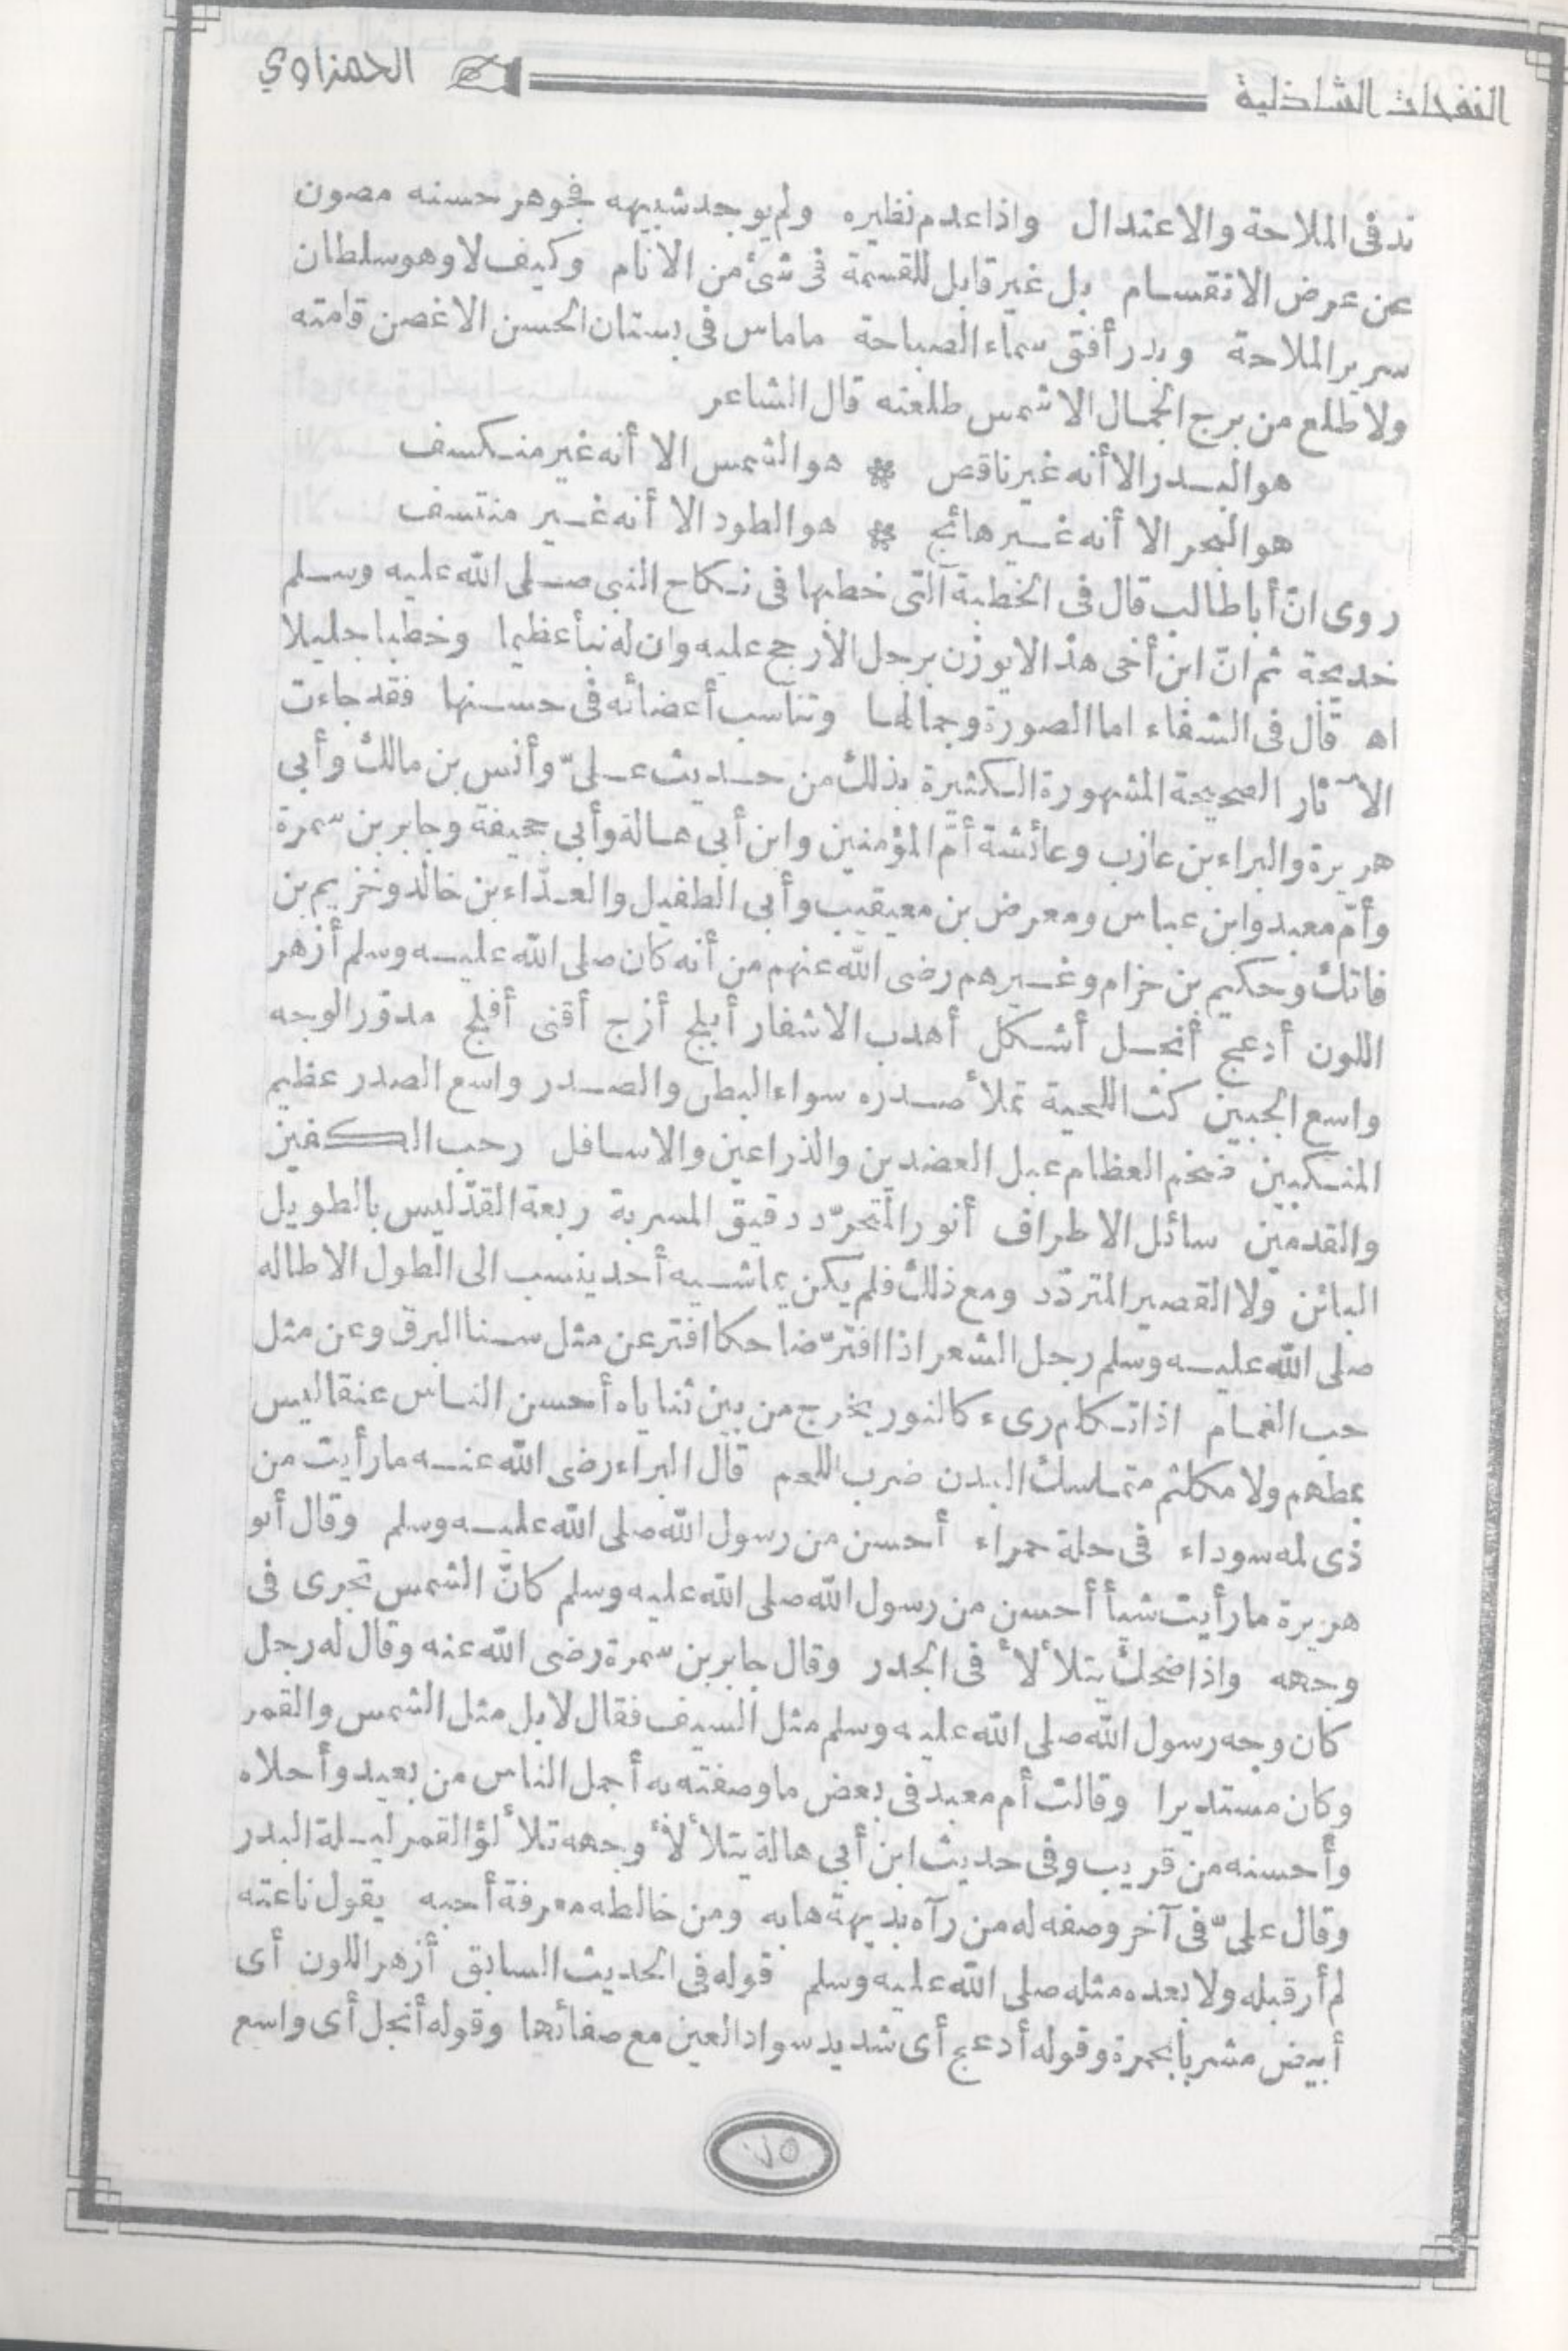 النفحات الشاذلية
الحمزاوي
ند فى الملاحة والاعتدال واذا عدم نظيره ولم يوجد شبيهه فجوهر حسنه مصون
عن عرض الانقسام بل غير قابل للقسمة فى شئ من الانام وكيف لا وهو سلطان
سرير الملاحة وبدر أفق سماء الصباحة ماماس فى بستان الحسن الاغصن قامته
ولا طلع من برج الجمال الا شمس طلعته قال الشاعر
هو البدر الا أنه غير ناقص * هو الشمس الا أنه غير منكسف
هو البحر الا أنه غير هائج * هو الطود الا أنه غير منتسف
روى انّ أبا طالب قال فى الخطبة التى خطبها فى نكاح النبى صلى الله عليه وسلم
خديجة ثم انّ ابن أخى هذا لا يوزن برجل الا رجح عليه وان له نبأ عظيما وخطبا جليلا
اه قال فى الشفاء اما الصورة وجمالها وتناسب أعضائه فى حسنها فقد جاءت
الآثار الصحيحة المشهورة الكثيرة بذلك من حديث علىّ وأنس بن مالك وأبى
هريرة والبراء بن عازب وعائشة أمّ المؤمنين وابن أبى هالة وأبى جحيفة وجابر بن سمرة
وأمّ معبد وابن عباس ومعرض بن معيقيب وأبى الطفيل والعدّاء بن خالد وخزيم بن
فاتك وحكيم بن حزام وغيرهم رضى الله عنهم من أنه كان صلى الله عليه وسلم أزهر
اللون أدعج أنجل أشكل أهدب الاشفار أبلج أزج أقنى أفلج مدوّر الوجه
واسع الجبين كث اللحية تملأ صدره سواء البطن والصدر واسع الصدر عظيم
المنكبين ضخم العظام عبل العضدين والذراعين والاسافل رحب الكفين
والقدمين سائل الاطراف أنور المتجرّد دقيق المسربة ربعة القدّ ليس بالطويل
البائن ولا القصير المتردّد ومع ذلك فلم يكن يماشيه أحد ينسب الى الطول الا طاله
صلى الله عليه وسلم رجل الشعر اذا افترّ ضاحكا افتر عن مثل سنا البرق وعن مثل
حب الغمام اذا تكلم رىء كالنور يخرج من بين ثناياه أحسن الناس عنقا ليس
بمطهم ولا مكلثم متماسك البدن ضرب اللحم قال البراء رضى الله عنه ما رأيت من
ذى لمه سوداء فى حلة حمراء أحسن من رسول الله صلى الله عليه وسلم وقال أبو
هريرة ما رأيت شيأ أحسن من رسول الله صلى الله عليه وسلم كانّ الشمس تجرى فى
وجهه واذا ضحك يتلألأ فى الجدر وقال جابر بن سمرة رضى الله عنه وقال له رجل
كان وجه رسول الله صلى الله عليه وسلم مثل السيف فقال لا بل مثل الشمس والقمر
وكان مستديرا وقالت أم معبد فى بعض ما وصفته به أجمل الناس من بعيد وأحلاه
وأحسنه من قريب وفى حديث ابن أبى هالة يتلألأ وجهه تلألؤ القمر ليلة البدر
وقال علىّ فى آخر وصفه له من رآه بديهة هابه ومن خالطه معرفة أحبه يقول ناعته
لم أر قبله ولا بعده مثله صلى الله عليه وسلم قوله فى الحديث السابق أزهر اللون أى
أبيض مشربا بحمرة وقوله أدعج أى شديد سواد العين مع صفائها وقوله أنجل أى واسع